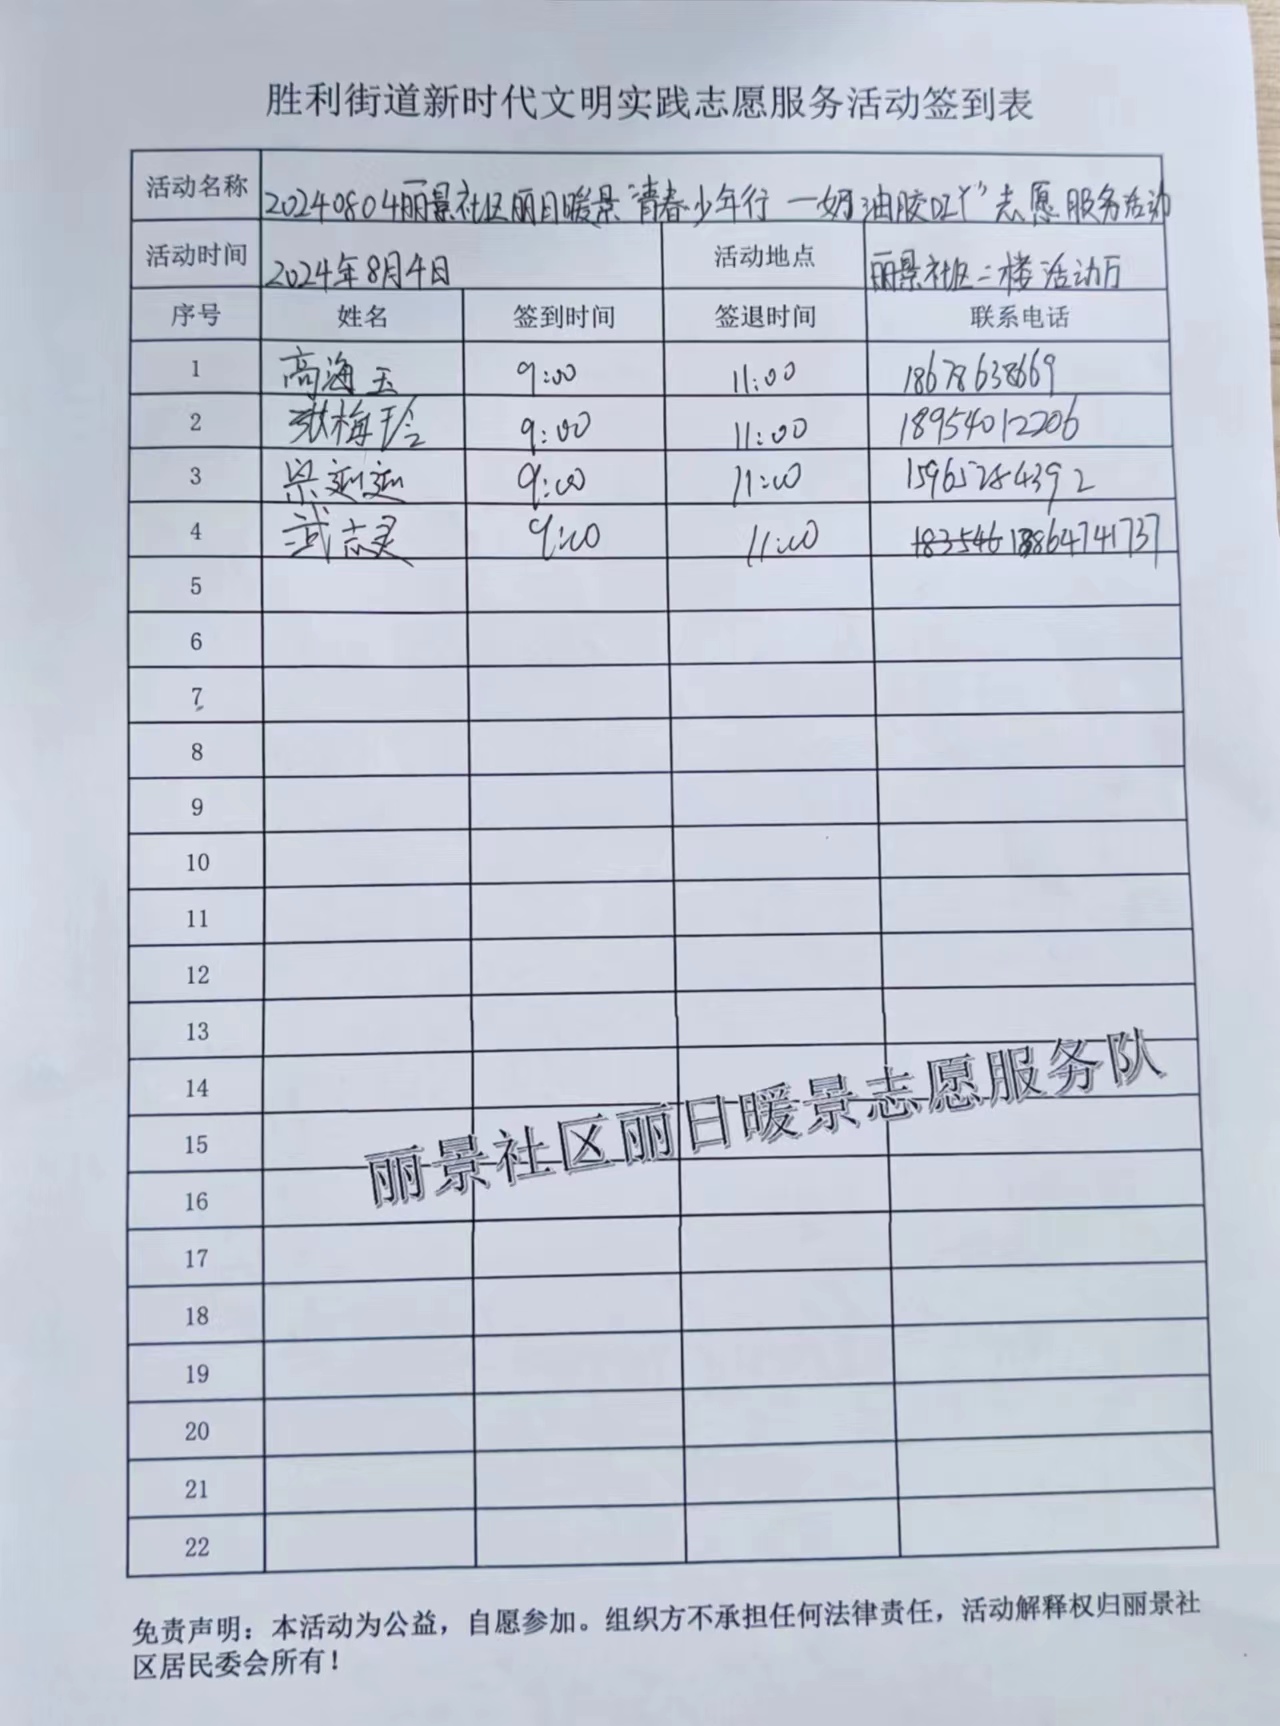 胜利街道新时代文明实践志愿服务活动签到表
活动名称 20240804丽景社区丽日暖景"青春少年行 一奶油胶DIY"志愿服务活动
活动时间 2024年8月4日 活动地点 丽景社区二楼活动厅
序号 姓名 签到时间 签退时间 联系电话
1 高海玉 9:00 11:00 18678638669
2 张梅玲 9:00 11:00 18954012206
3 9:00 11:00 15965284392
4 武志灵 9:00 11:00 18864741737
5
6
7
8
9
10
11
12
13
14
15
16
17
18
19
20
21
22
丽景社区丽日暖景志愿服务队
免责声明：本活动为公益，自愿参加。组织方不承担任何法律责任，活动解释权归丽景社
区居民委会所有！